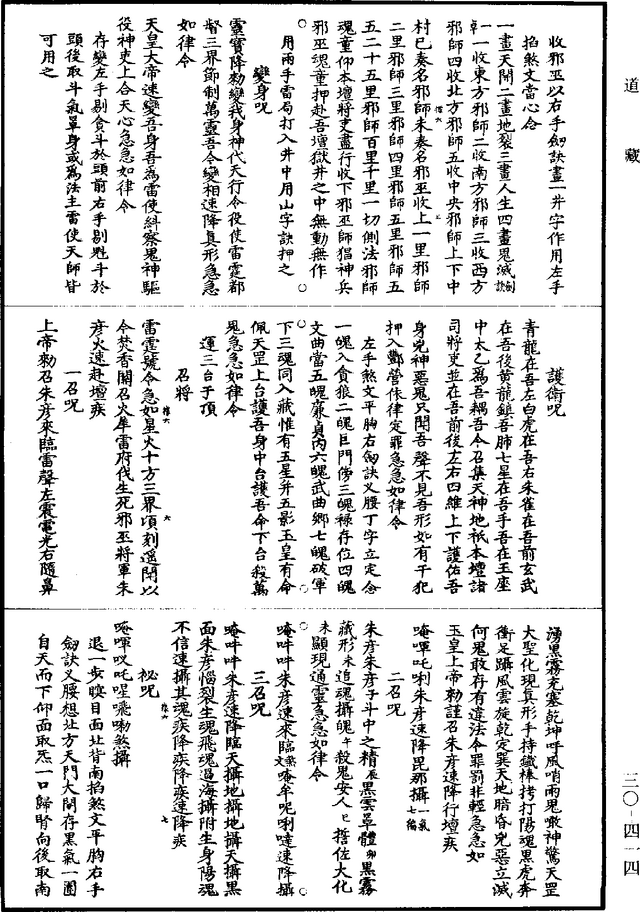 道藏
收邪巫以右手劍訣畫一井字作用左手
掐煞文當心念
一畫天開二畫地裂三畫人生四畫鬼滅
一收東方邪師二收南方邪師三收西方
邪師四收北方邪師五收中央邪師上下中
村已奏名邪師未奏名邪巫收上一里邪師
二里邪師三里邪師四里邪師五里邪師五
五二十五里邪師百里千里一切側法邪師
魂童仰本壇將吏盡行收下邪巫師猖神兵
邪巫魂童押赴吾壇獄井之中無動無作
用兩手雷局打入井中用山字訣押之
變身呪
靈寶降勑變我身神代天行令役使雷霆都
督三界節制萬靈吾今變相速降真形急急
如律令
天皇大帝速變吾身吾為雷使糾察鬼神驅
役神吏上合天心急急如律令
存變左手剔貪斗於頭前右手剔魁斗於
頭後取斗氣罩身或為法主雷使天師皆
可用之
護衛呪
青龍在吾左白虎在吾右朱雀在吾前玄武
在吾後黄龍鎮吾肺七星在吾手吾在玉座
中太乙為吾耦吾今召集天神地祇本壇諸
司將吏並在吾前後左右四維上下護佑吾
身兇神惡鬼只聞吾聲不見吾形如有干犯
押入酆營依律定罪急急如律令
左手煞文平胸右劍訣义腰丁字立定念
一魄入貪狼二魄巨門傍三魄禄存位四魄
文曲當五魄廉貞内六魄武曲鄉七魄破軍
下三魂同入藏惟有五星并五影玉皇有命
佩天罡上台護吾身中台護吾命下台殺萬
鬼急急如律令
運三台于頂
召將
雷霆號令急如星火十方三界頃刻遥聞以
今焚香關召火犀雷府伐生死邪巫將軍朱
彦火速赴壇疾
一召呪
上帝勑召朱彦來臨雷聲左震電光右隨鼻
湧黑霧充塞乾坤呼風哨雨鬼噉神驚天罡
大聖化現真形手持鐵棒拷打陽魂黑虎奔
衝足躡風雲旋乾定巽天地暗昏兇惡立滅
何鬼敢存有違法令罪罰非輕急急如
玉皇上帝勑謹召朱彦速降行壇疾
唵暉吒唎朱彦速降毘那攝一氣七徧
二召呪
朱彦朱彦子斗中之精辰黑雲罩體卯黑霧
藏形未追魂攝魄午殺鬼安人巳誓佐大化
未顯現通靈急急如律令
唵吽吽朱彦速來臨唵牟呢唎噠速降攝
三召呪
唵吽吽朱彦速降臨天攝地攝天攝黒
面朱彦惱裂生魂飛魂過海攝附生身陽魂
不信速攝其魂疾降疾降疾速降疾
祕呪
唵暉哎吒喤㘑呦煞攝
退一步瞠目面北背南掐煞文平胸右手
劍訣义腰想北方天門大開存黑氣一團
自天而下仰面取炁一口歸腎向後取南
三〇-四一四